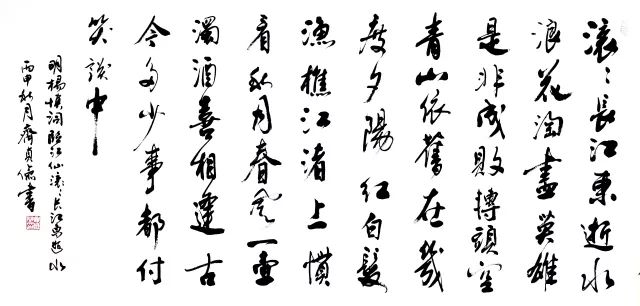 滚〻長江東逝水
浪花淘盡英雄
是非成敗轉頭空
青山依舊在幾
度夕陽紅白髮
漁樵江渚上慣
看秋月春風一壺
濁酒喜相逢古
今多少事都付
笑談中
明楊慎詞臨江仙滚〻長江東逝水
丙申秋月齊貞書